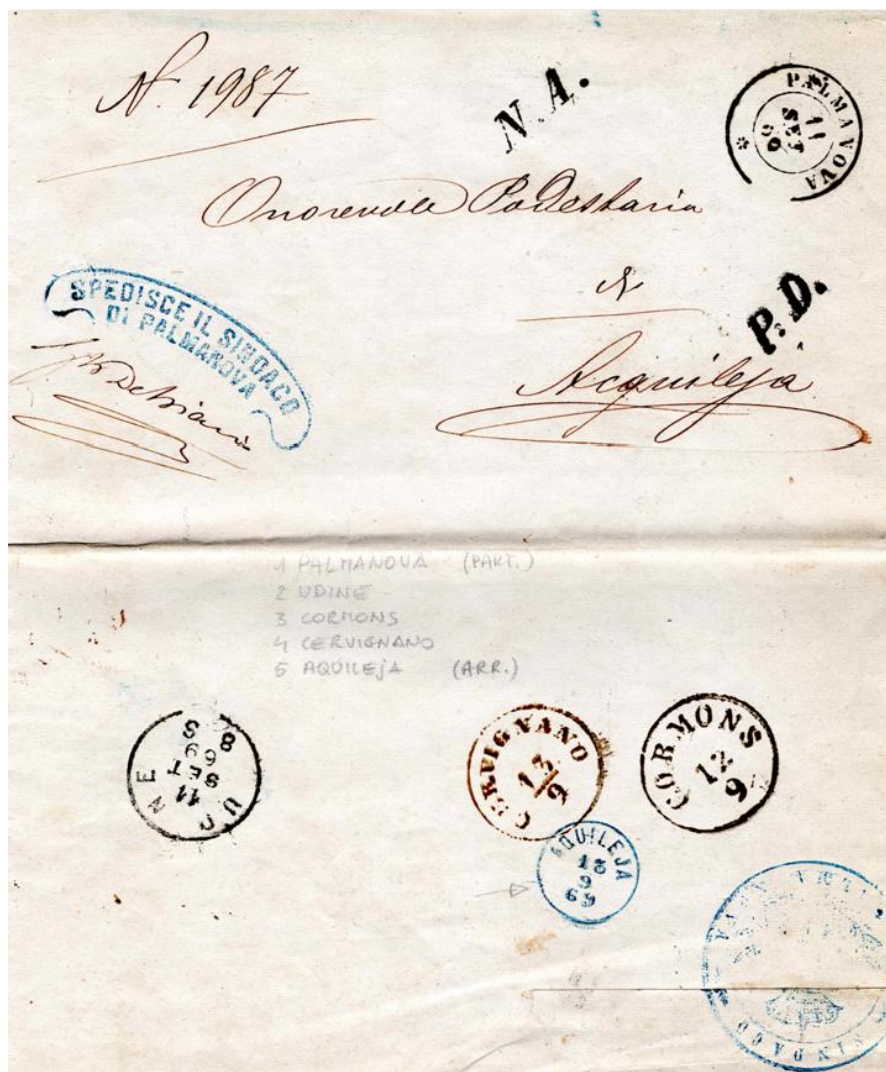 N. 1987
N.A.
PALMANOVA
11
SET
69
*
Onorevole Podestaria
di
SPEDISCE IL SINDACO
DI PALMANOVA
P.D.
Acquileja
1 PALMANOVA (PART.)
2 UDINE
3 CORMONS
4 CERVIGNANO
5 AQUILEJA (ARR.)
UDINE
11
SET
69
8 S
CERVIGNANO
13
9
CORMONS
12
9
AQUILEJA
13
9
69